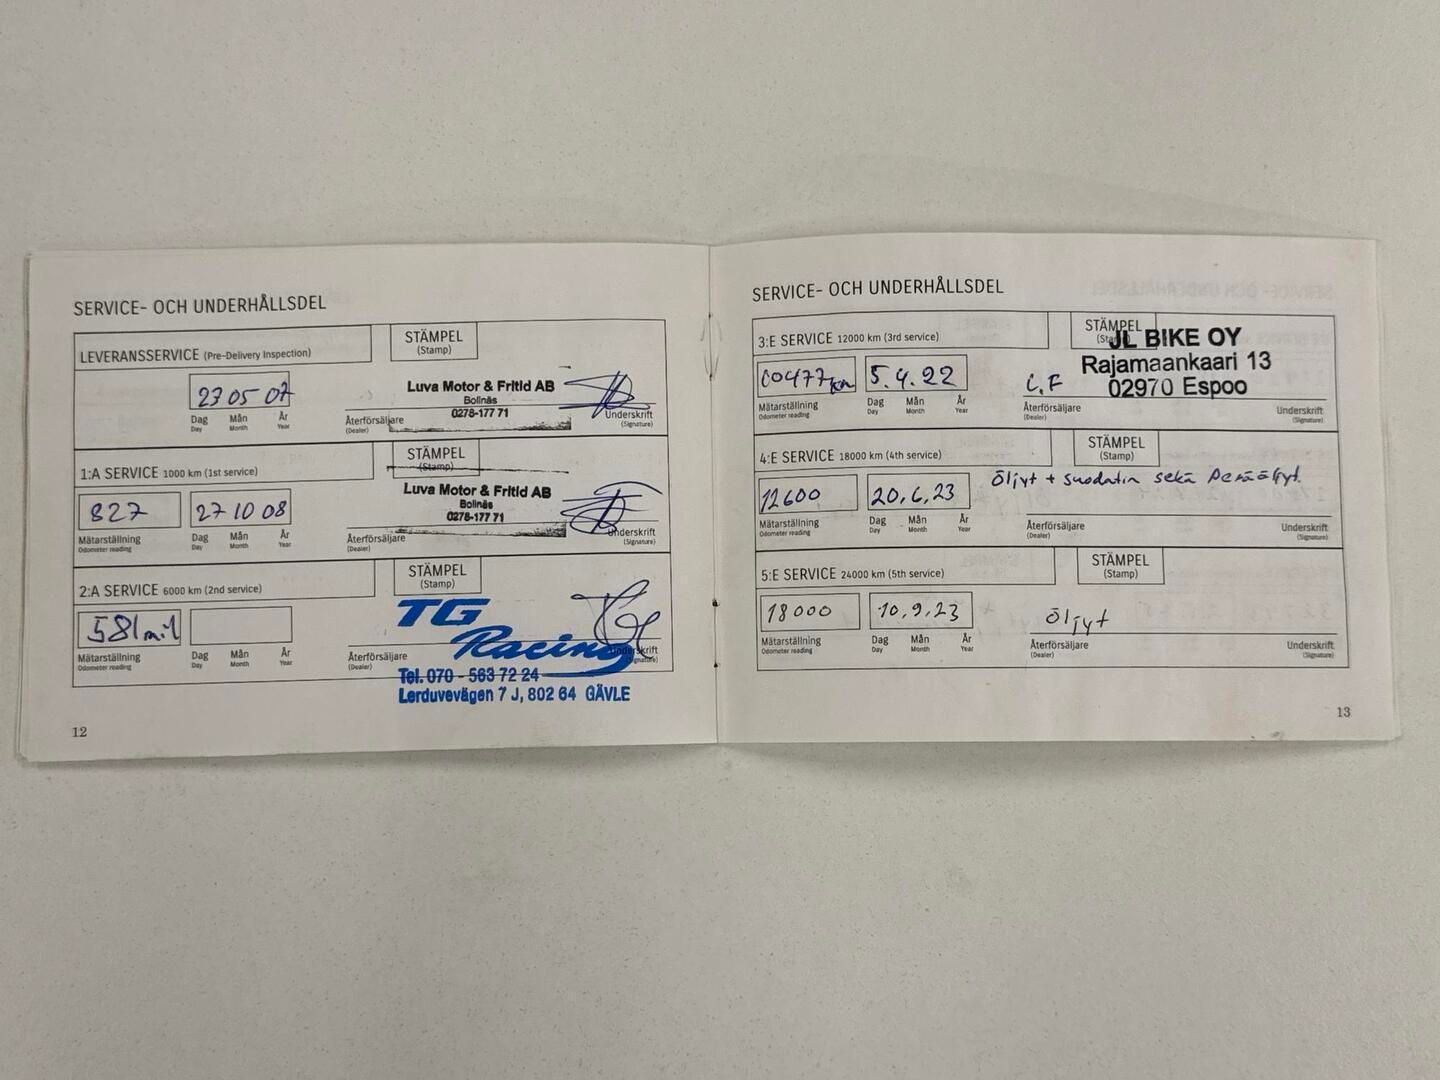 SERVICE- OCH UNDERHÅLLSDEL
LEVERANSSERVICE (Pre-Delivery Inspection)
STÄMPEL
(Stamp)
27 05 07
Dag Mån År
Day Month Year
Luva Motor & Fritid AB
Bollnäs
0278-177 71
Återförsäljare
(Dealer)
Underskrift
(Signature)
1:A SERVICE 1000 km (1st service)
STÄMPEL
(Stamp)
827
27 10 08
Mätarställning
Odometer reading
Dag Mån År
Day Month Year
Luva Motor & Fritid AB
Bollnäs
0278-177 71
Återförsäljare
(Dealer)
Underskrift
(Signature)
2:A SERVICE 6000 km (2nd service)
STÄMPEL
(Stamp)
581 mil
Mätarställning
Odometer reading
Dag Mån År
Day Month Year
TG
Racing
Återförsäljare
(Dealer)
Underskrift
(Signature)
Tel. 070 - 563 72 24
Lerduvevägen 7 J, 802 64 GÄVLE
12
SERVICE- OCH UNDERHÅLLSDEL
3:E SERVICE 12000 km (3rd service)
STÄMPEL
(Stamp)
JL BIKE OY
Rajamaankaari 13
02970 Espoo
km
5.4.22
Mätarställning
(Odometer reading)
Dag Mån År
Day Month Year
Återförsäljare
(Dealer)
Underskrift
(Signature)
4:E SERVICE 18000 km (4th service)
STÄMPEL
(Stamp)
12600
20.6.23
Öljyt + suodatin sekä Peräöljyt.
Mätarställning
(Odometer reading)
Dag Mån År
Day Month Year
Återförsäljare
(Dealer)
Underskrift
(Signature)
5:E SERVICE 24000 km (5th service)
STÄMPEL
(Stamp)
18000
10.9.23
öljyt
Mätarställning
Odometer reading
Dag Mån År
Day Month Year
Återförsäljare
(Dealer)
Underskrift
(Signature)
13